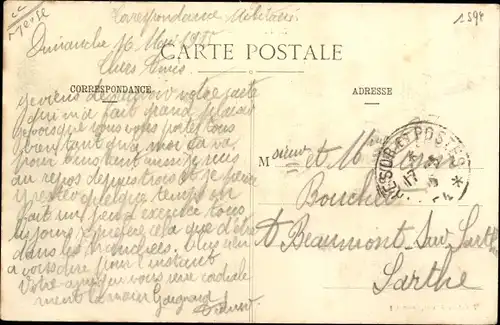 Meuse
1594
Correspondance Militaire
Dimanche 16 Mai 1915
CARTE POSTALE
Chers Amis
CORRESPONDANCE
ADRESSE
Je viens de recevoir votre carte
qui m'a fait grand plaisir
je vois que vous vous portez tous
bien tant qu'a moi ça va
pour tant aussi je suis
au repos depuis trois et je pense
y rester quelque temps on
fait un peu d'exercice tous
les jours que cela que d'être
dans les tranchées. Plus rien
a vous dire pour l'instant
Votre ami qui vous serre cordiale
ment la main
M onsieur et Mme
Boucher
A Beaumont-sur-Sarthe
Sarthe
TRESOR ET POSTES